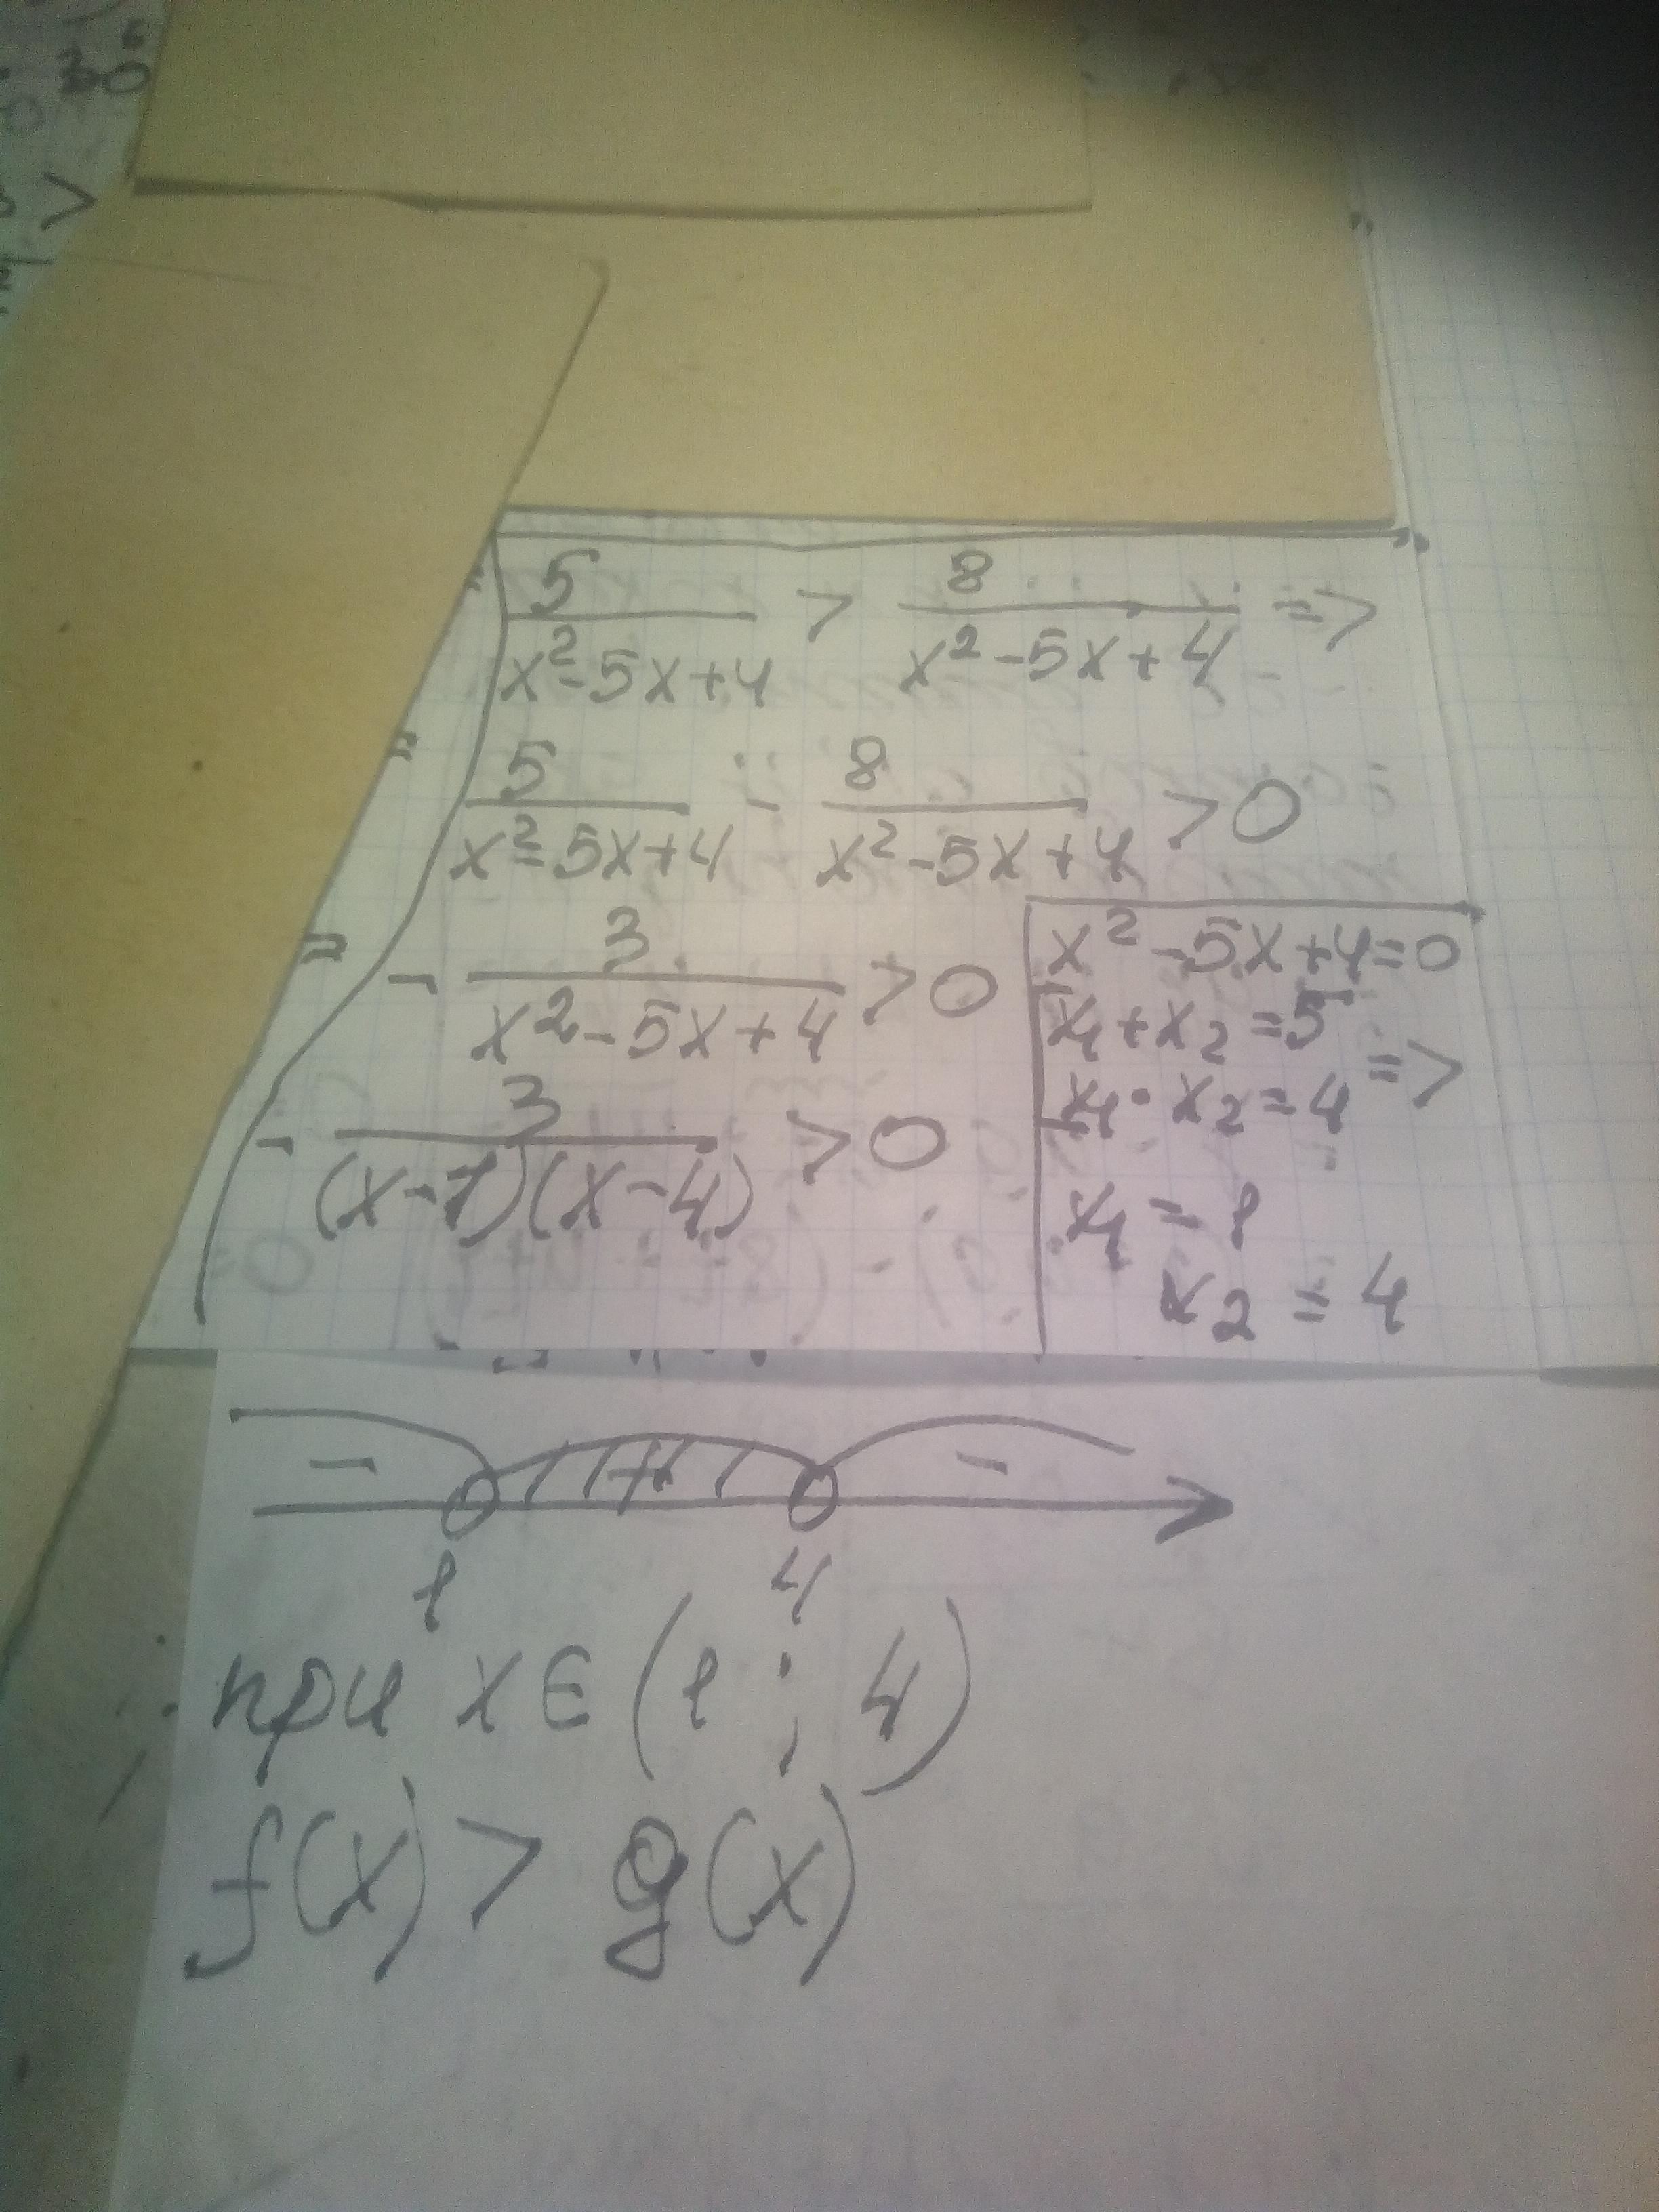 5/(x²-5x+4) > 8/(x²-5x+4) =>
5/(x²-5x+4) - 8/(x²-5x+4) >0
- 3/(x²-5x+4) >0
- 3/((x-1)(x-4)) >0
x²-5x+4=0
x₁+x₂=5 =>
x₁·x₂=4
x₁=1
x₂=4
- + -
1 4
при x∈(1;4)
f(x)>g(x)